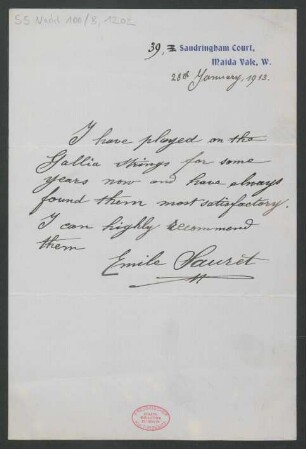 55 Nachl 100/B, 1202
39, Sandringham Court,
Maida Vale, W.
28th January, 1913.
I have played on the
Gallia strings for some
years now and have always
found them most satisfactory.
I can highly recommend
them
Emile Sauret